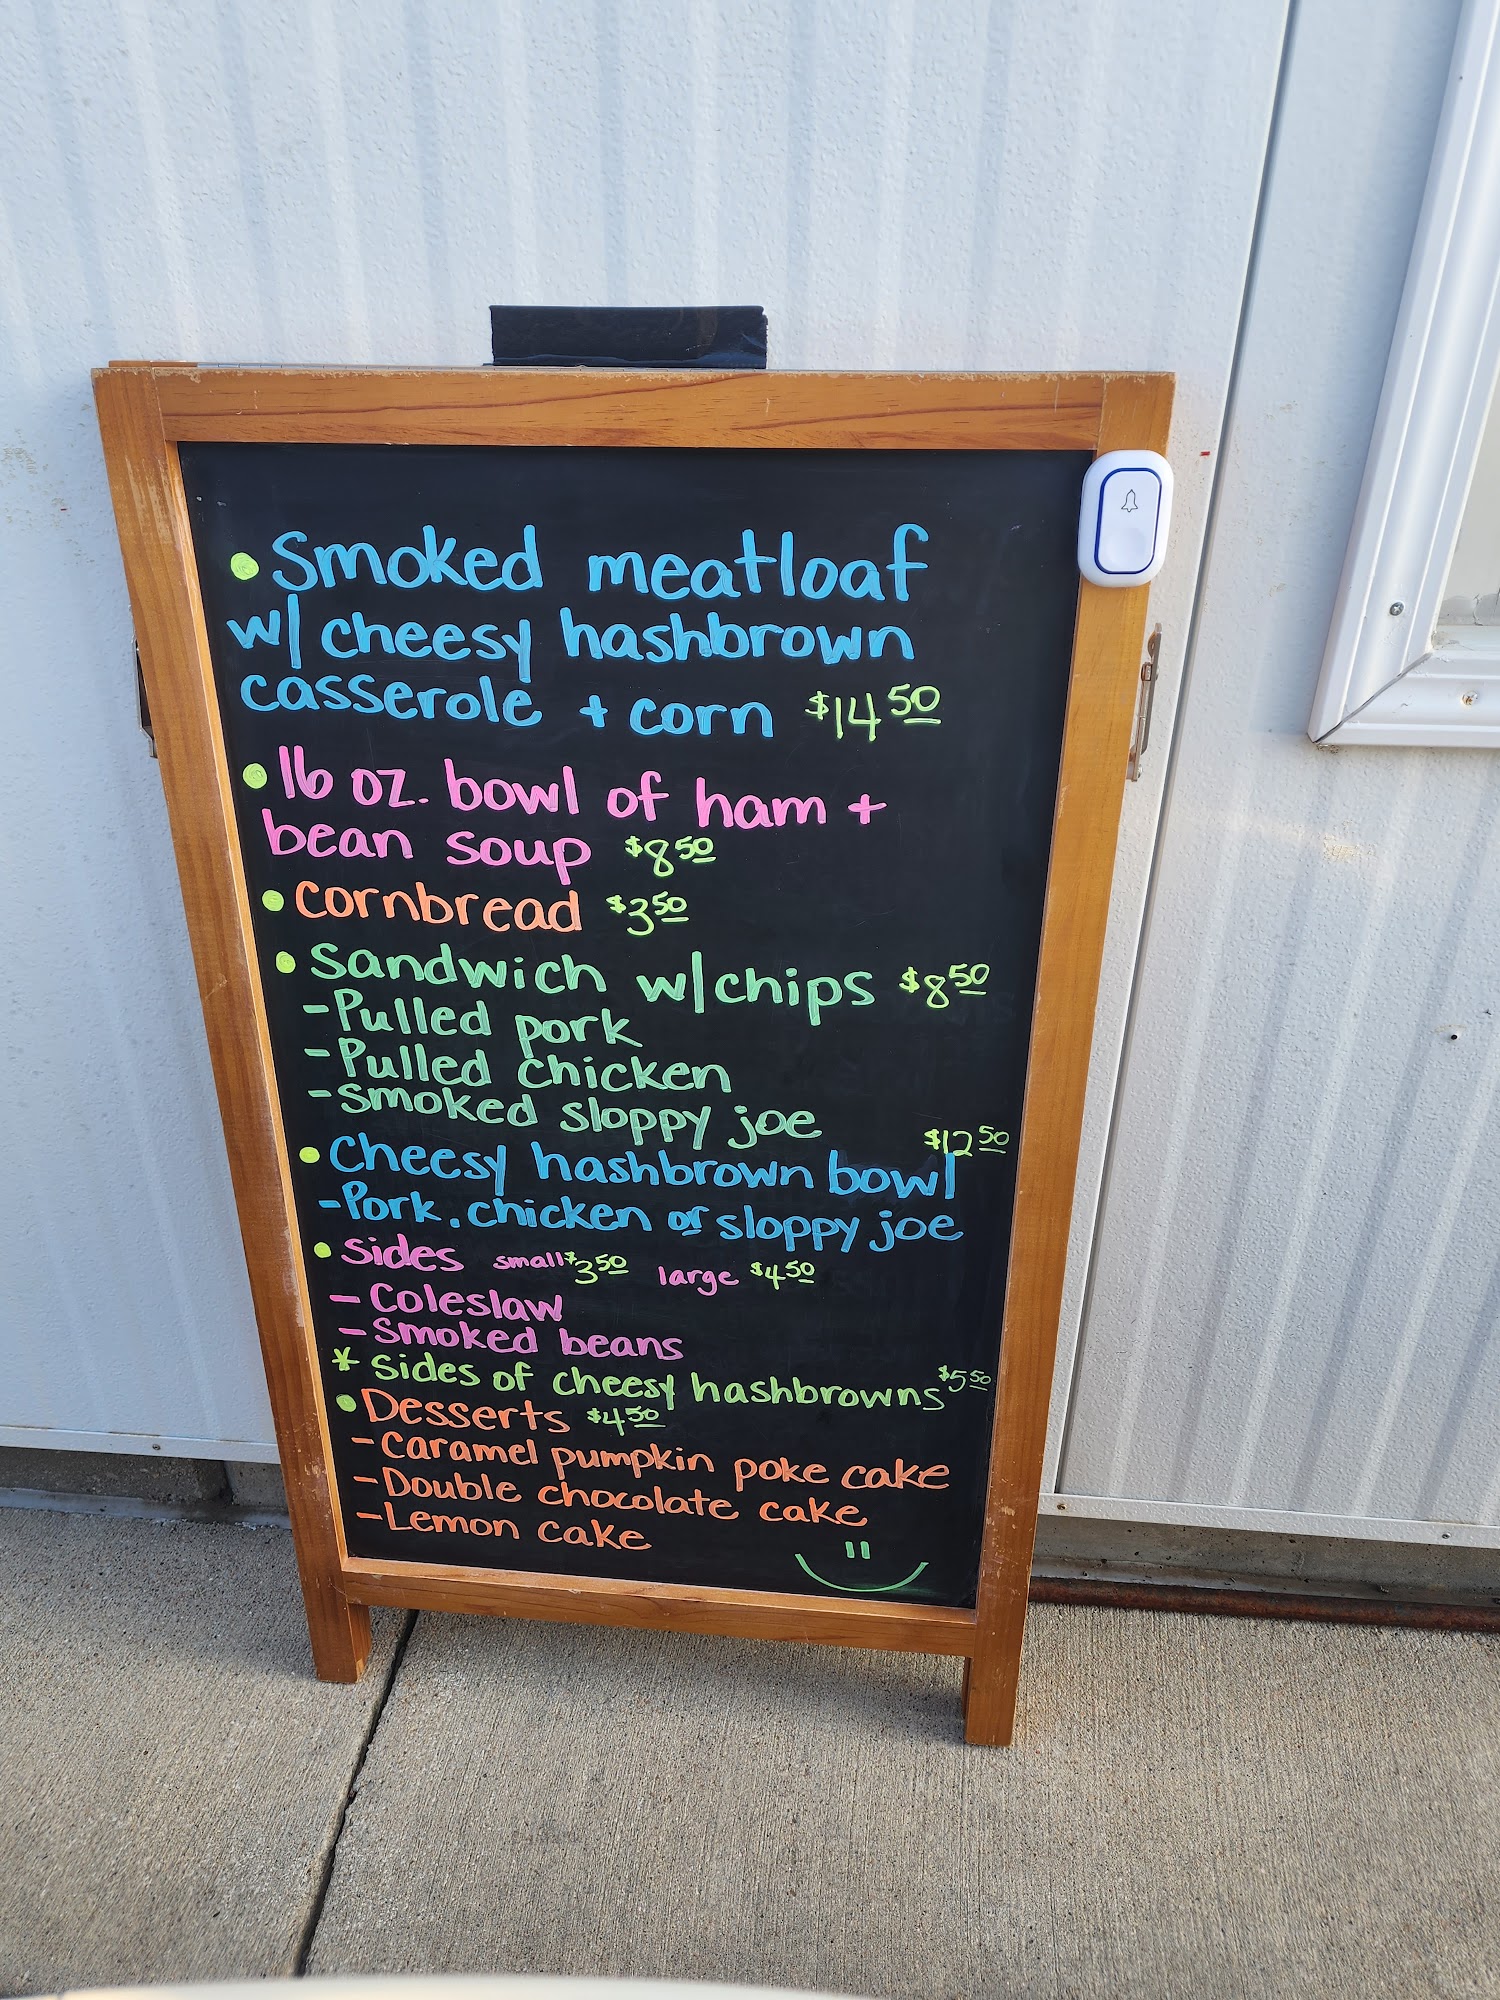 • Smoked meatloaf
w/ cheesy hashbrown
casserole + corn $14 50
• 16 oz. bowl of ham +
bean soup $8 50
• Cornbread $3 50
• Sandwich w/chips $8 50
- Pulled pork
- Pulled chicken
- Smoked sloppy joe
$12 50
• Cheesy hashbrown bowl
- Pork, chicken or sloppy joe
• Sides small $3 50 large $4 50
- Coleslaw
- Smoked beans
* Sides of cheesy hashbrowns $5 50
• Desserts $4 50
- Caramel pumpkin poke cake
- Double chocolate cake
- Lemon cake